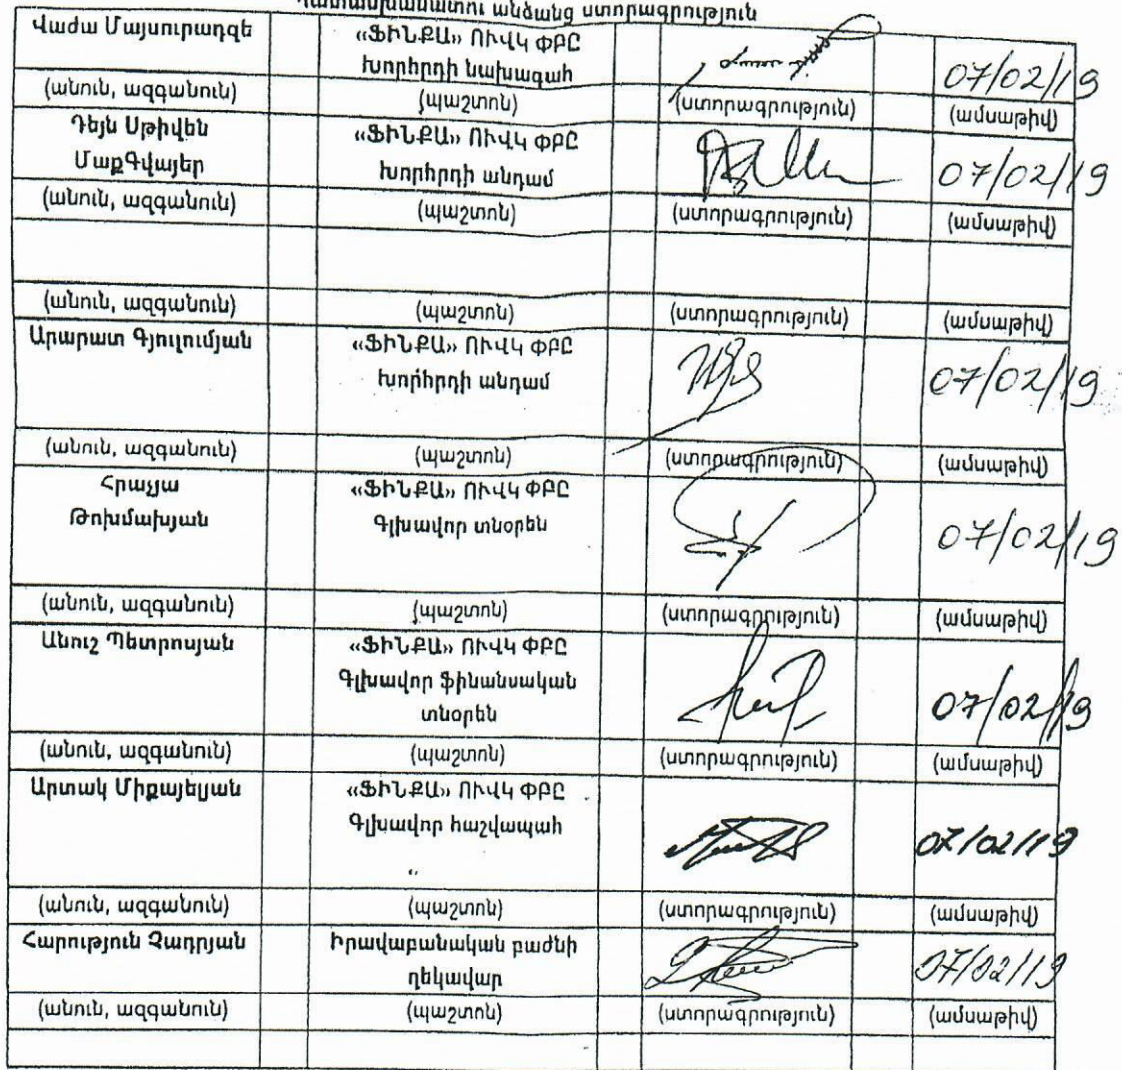 Պատասխանատու անձանց ստորագրություն
Վաժա Մայսուրաձզե «ՖԻՆՔԱ» ՈՒՎԿ ՓԲԸ
Խորհրդի նախագահ 07/02/19
(անուն, ազգանուն) (պաշտոն) (ստորագրություն) (ամսաթիվ)
Դեյն Սթիվեն «ՖԻՆՔԱ» ՈՒՎԿ ՓԲԸ
ՄաքԳվայեր Խորհրդի անդամ 07/02/19
(անուն, ազգանուն) (պաշտոն) (ստորագրություն) (ամսաթիվ)
(անուն, ազգանուն) (պաշտոն) (ստորագրություն) (ամսաթիվ)
Արարատ Գյուլումյան «ՖԻՆՔԱ» ՈՒՎԿ ՓԲԸ
Խորհրդի անդամ 07/02/19
(անուն, ազգանուն) (պաշտոն) (ստորագրություն) (ամսաթիվ)
Հրաչյա «ՖԻՆՔԱ» ՈՒՎԿ ՓԲԸ
Թոխմախյան Գլխավոր տնօրեն 07/02/19
(անուն, ազգանուն) (պաշտոն) (ստորագրություն) (ամսաթիվ)
Անուշ Պետրոսյան «ՖԻՆՔԱ» ՈՒՎԿ ՓԲԸ
Գլխավոր ֆինանսական
տնօրեն 07/02/19
(անուն, ազգանուն) (պաշտոն) (ստորագրություն) (ամսաթիվ)
Արտակ Միքայելյան «ՖԻՆՔԱ» ՈՒՎԿ ՓԲԸ
Գլխավոր հաշվապահ 07/02/19
(անուն, ազգանուն) (պաշտոն) (ստորագրություն) (ամսաթիվ)
Հարություն Չադրյան Իրավաբանական բաժնի
ղեկավար 07/02/19
(անուն, ազգանուն) (պաշտոն) (ստորագրություն) (ամսաթիվ)